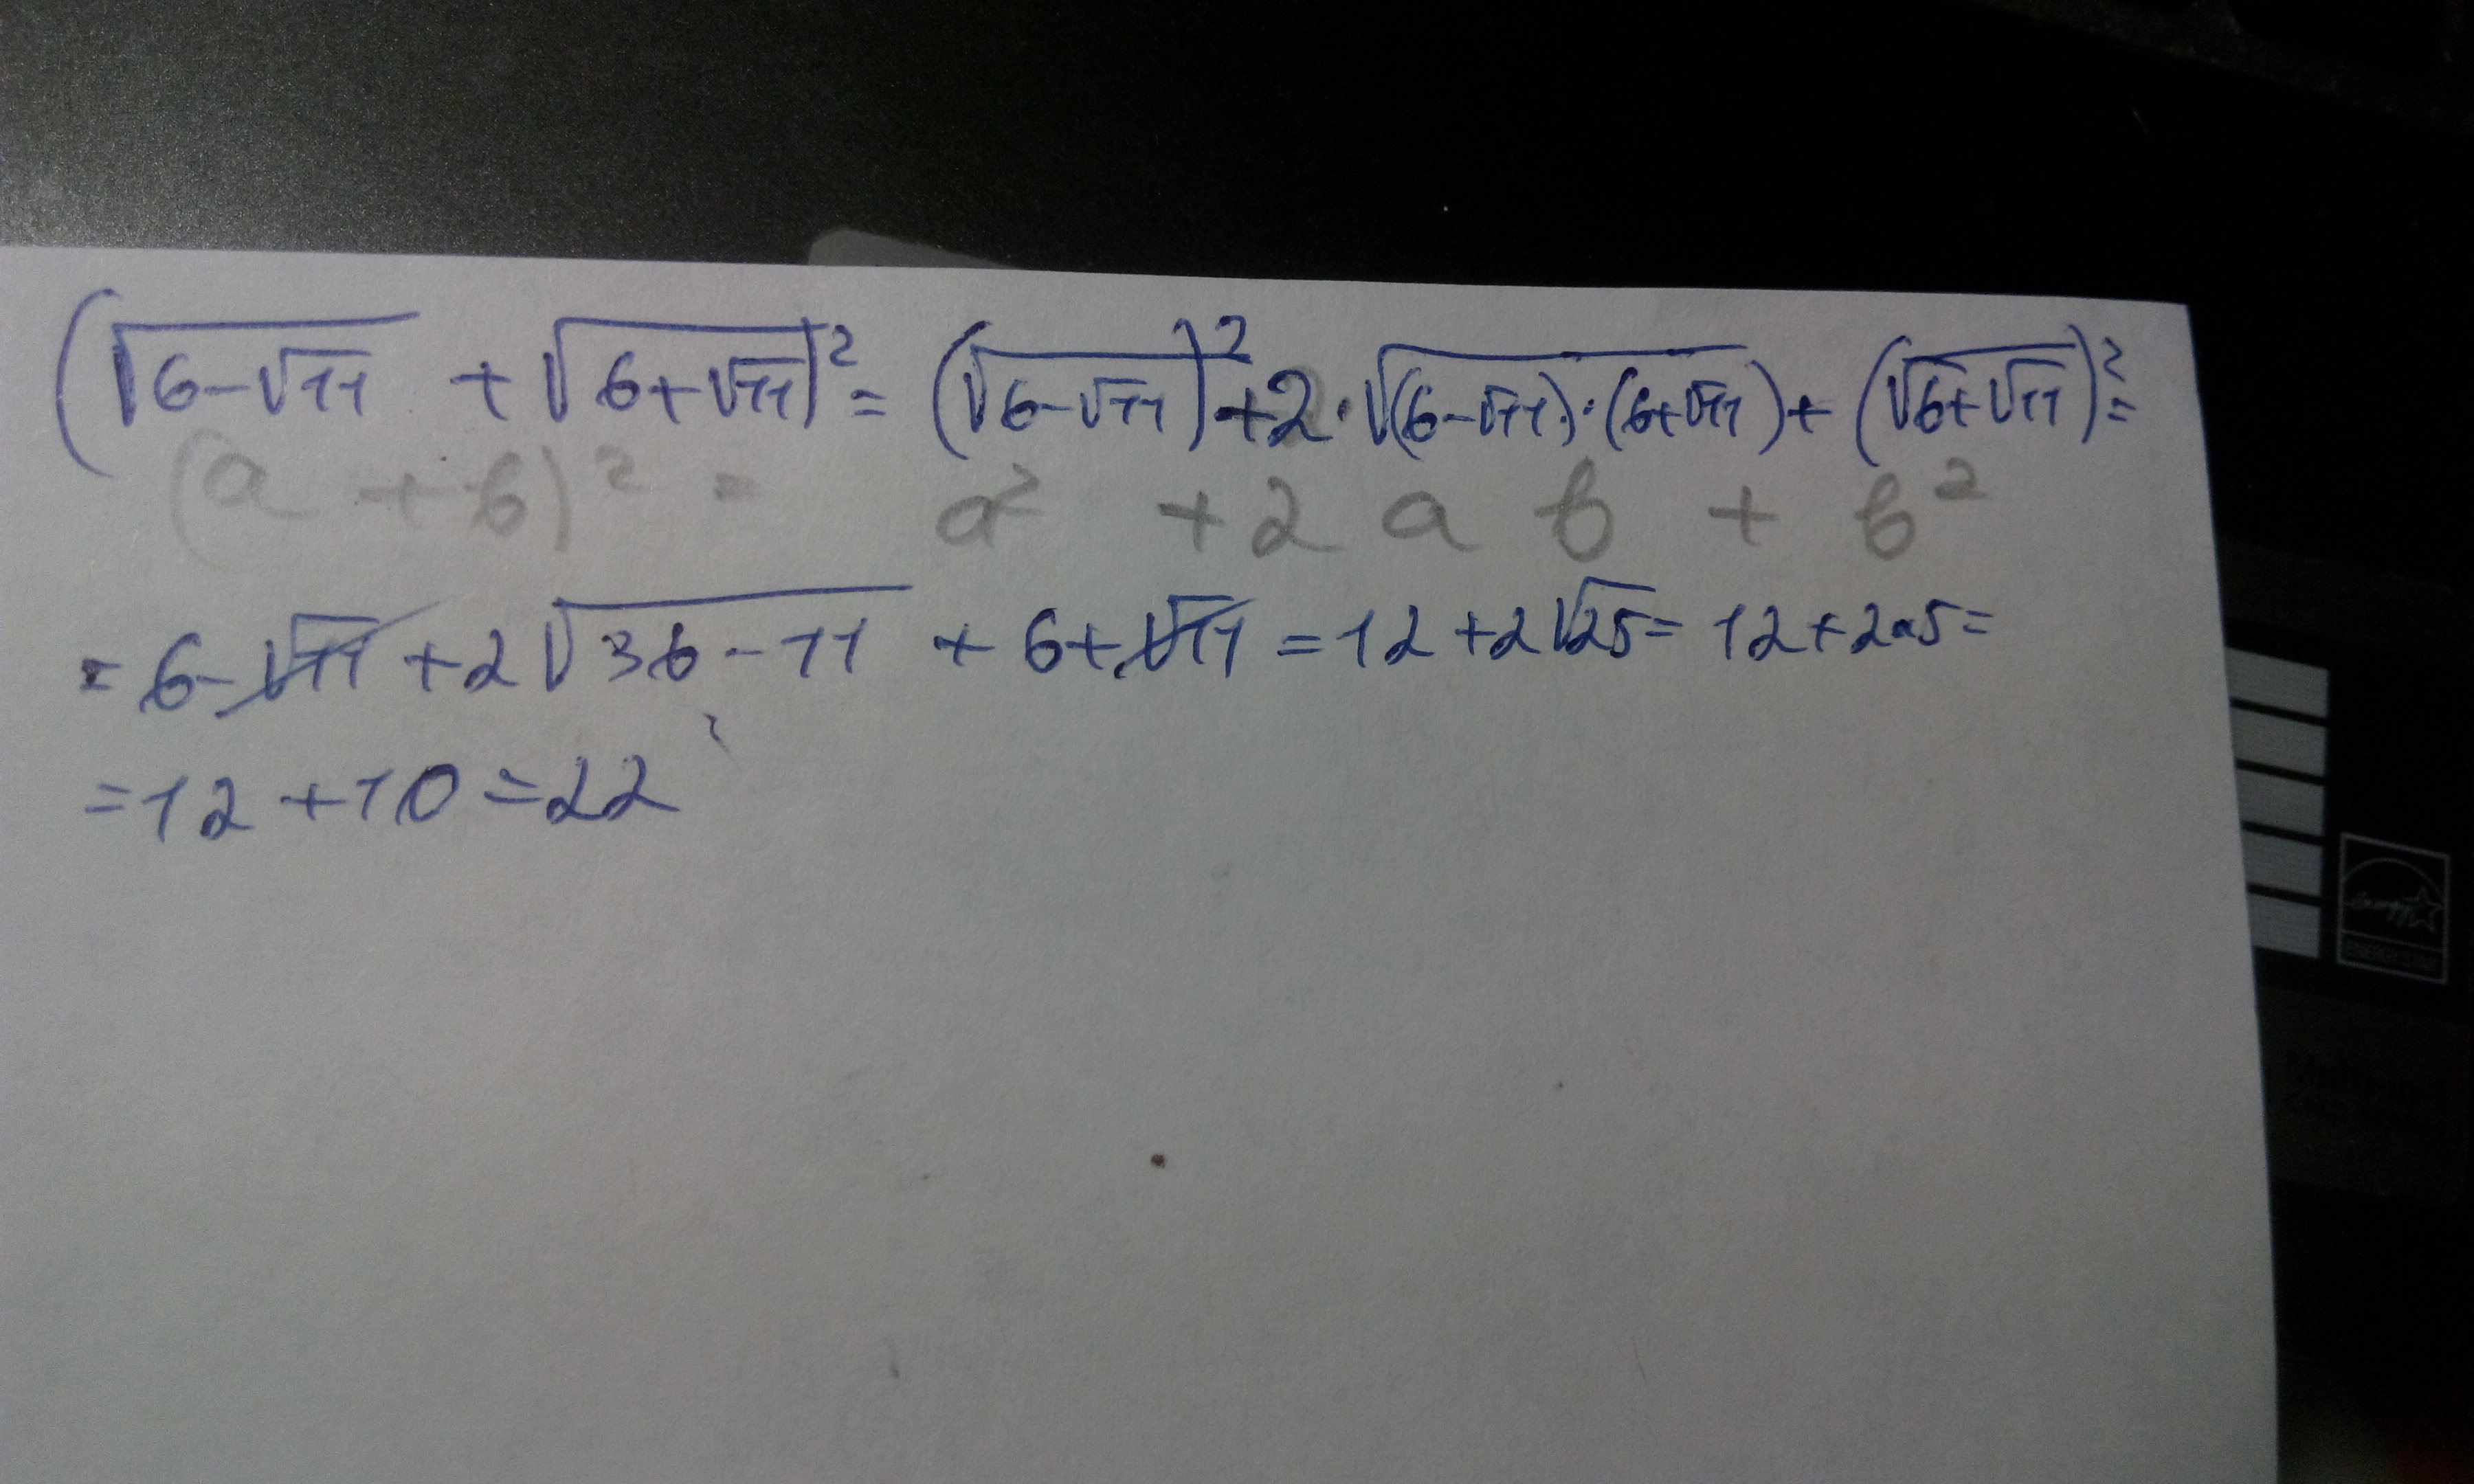 (√(6-√11) + √(6+√11))² = (√(6-√11))² + 2 · √((6-√11)·(6+√11)) + (√(6+√11))² =
(a + b)² = a² + 2 a b + b²
= 6-√11 + 2√(36-11) + 6+√11 = 12 + 2√25 = 12 + 2·5 =
= 12 + 10 = 22
ENERGY STAR